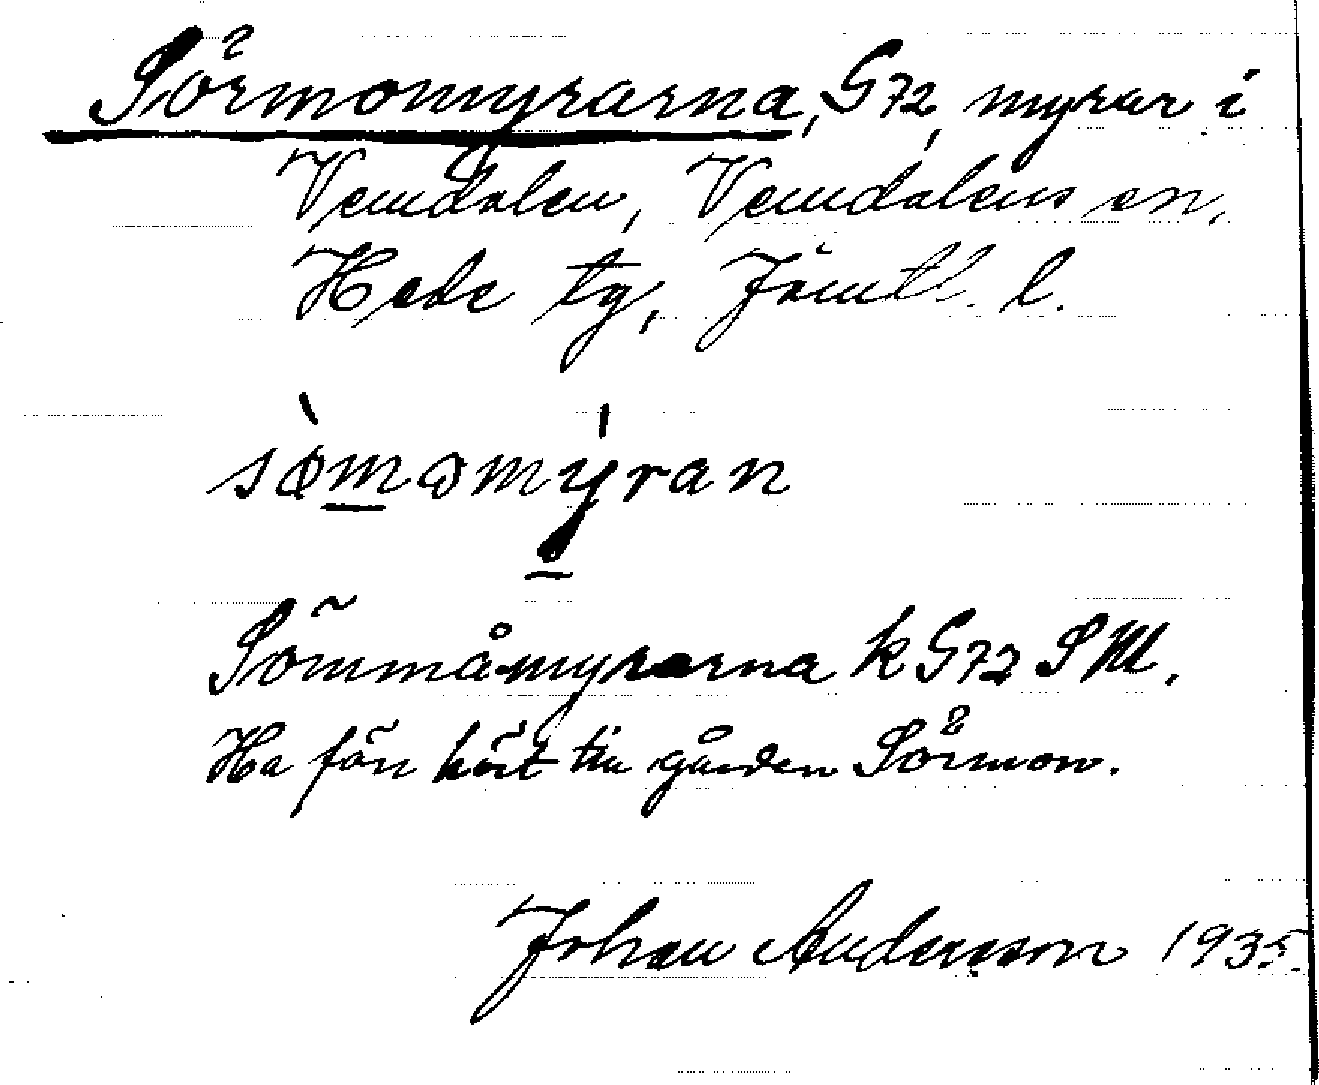 Sörmomyrarna, G72, myrar i
Vemdalen, Vemdalens sn,
Hede tg, Jämtl. l.
sø̀məmýran
Sömmåmyrarna k G72 SM.
Ha förr hört till gården Sörmon.
Johan Andersson 1935.